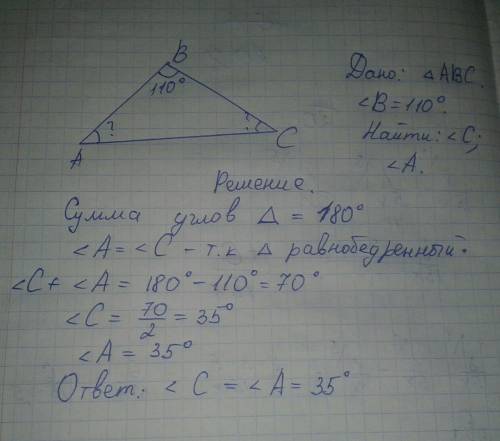 B
110°
?
?
A
C
Дано: △ABC.
∠B=110°.
Найти: ∠C;
∠A.
Решение.
Сумма углов △ = 180°
∠A = ∠C - т.к △ равнобедренный.
∠C + ∠A = 180° - 110° = 70°
∠C = 70/2 = 35°
∠A = 35°
Ответ: ∠C = ∠A = 35°